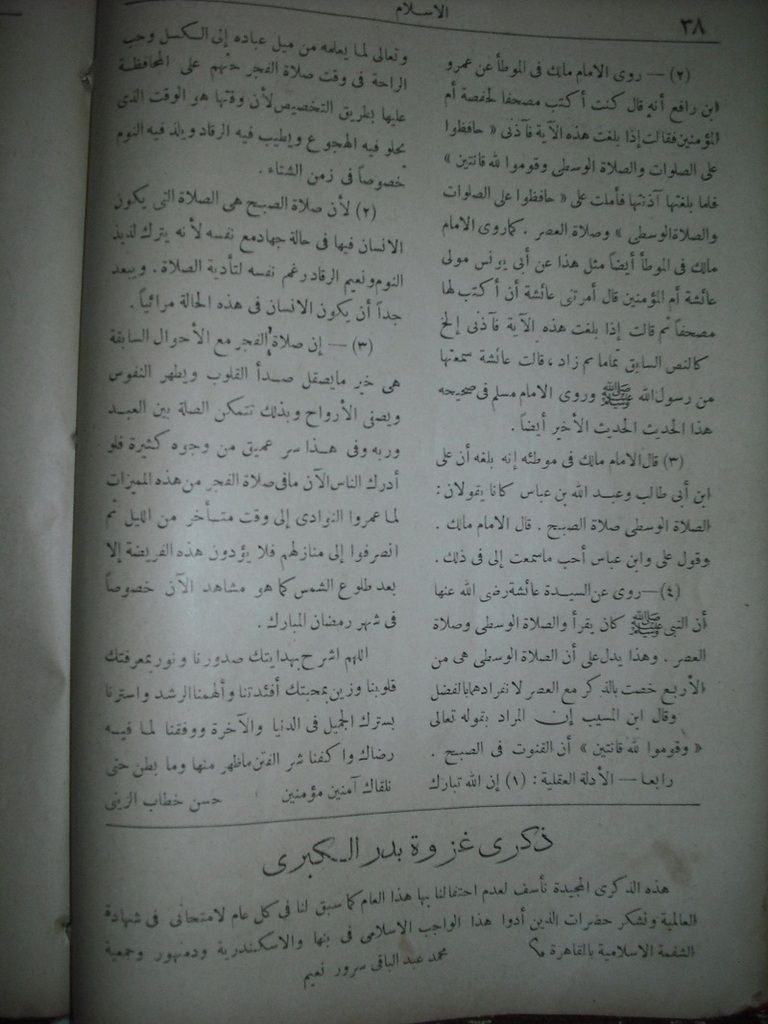 ٣٨
الاسلام
(٢) — روى الامام مالك فى الموطأ عن عمرو
ابن رافع أنه قال كنت أكتب مصحفا لحفصة أم
المؤمنين فقالت إذا بلغت هذه الآية فآذنى « حافظوا
على الصلوات والصلاة الوسطى وقوموا لله قانتين »
فلما بلغتها آذنتها فأملت على « حافظوا على الصلوات
والصلاة الوسطى » وصلاة العصر . كما روى الامام
مالك فى الموطأ أيضاً مثل هذا عن أبى يونس مولى
عائشة أم المؤمنين قال أمرتنى عائشة أن أكتب لها
مصحفاً ثم قالت إذا بلغت هذه الآية فآذنى إلخ
كالنص السابق تماما ثم زاد ، قالت عائشة سمعتها
من رسول الله ﷺ وروى الامام مسلم فى صحيحه
هذا الحديث الحديث الأخير أيضاً .
(٣) قال الامام مالك فى موطئه إنه بلغه أن على
ابن أبى طالب وعبد الله بن عباس كانا يقولان :
الصلاة الوسطى صلاة الصبح . قال الامام مالك .
وقول على وابن عباس أحب ماسمعت إلى فى ذلك .
(٤) — روى عن السيدة عائشة رضى الله عنها
أن النبى ﷺ كان يقرأ والصلاة الوسطى وصلاة
العصر . وهذا يدل على أن الصلاة الوسطى هى من
الأربع خصت بالذكر مع العصر لانفرادهما بالفضل
وقال ابن المسيب إن المراد بقوله تعالى
« وقوموا لله قانتين » أن القنوت فى الصبح .
رابعا — الأدلة العقلية : (١) إن الله تبارك
وتعالى لما يعلمه من ميل عباده إلى الكسل وحب
الراحة فى وقت صلاة الفجر حثهم على المحافظة
عليها بطريق التخصيص لأن وقتها هو الوقت الذى
يحلو فيه الهجوع ويطيب فيه الرقاد ويلذ فيه النوم
خصوصاً فى زمن الشتاء .
(٢) لأن صلاة الصبح هى الصلاة التى يكون
الانسان فيها فى حالة جهاد مع نفسه لأنه يترك لذيذ
النوم ونعيم الرقاد رغم نفسه لتأدية الصلاة . ويبعد
جداً أن يكون الانسان فى هذه الحالة مرائياً .
(٣) — إن صلاة الفجر مع الأحوال السابقة
هى خير مايصقل صدأ القلوب ويطهر النفوس
ويصفى الأرواح وبذلك تتمكن الصلة بين العبد
وربه وفى هذا سر عميق من وجوه كثيرة فلو
أدرك الناس الآن مافى صلاة الفجر من هذه المميزات
لما عمروا النوادى إلى وقت متأخر من الليل ثم
انصرفوا إلى منازلهم فلا يؤدون هذه الفريضة إلا
بعد طلوع الشمس كما هو مشاهد الآن خصوصاً
فى شهر رمضان المبارك .
اللهم اشرح بهدايتك صدورنا ونور بمعرفتك
قلوبنا وزين بمحبتك أفئدتنا وألهمنا الرشد واسترنا
بسترك الجميل فى الدنيا والآخرة ووفقنا لما فيه
رضاك واكفنا شر الفتن ماظهر منها وما بطن حتى
نلقاك آمنين مؤمنين حسن خطاب الزينى
ذكرى غزوة بدر الكبرى
هذه الذكرى المجيدة نأسف لعدم احتفالنا بها هذا العام كما سبق لنا فى كل عام لامتحانى فى شهادة
العالمية ونشكر حضرات الذين أدوا هذا الواجب الاسلامى فى بنها والاسكندرية ودمنهور وجمعية
الشفعة الاسلامية بالقاهرة محمد عبد الباقى سرور نعيم